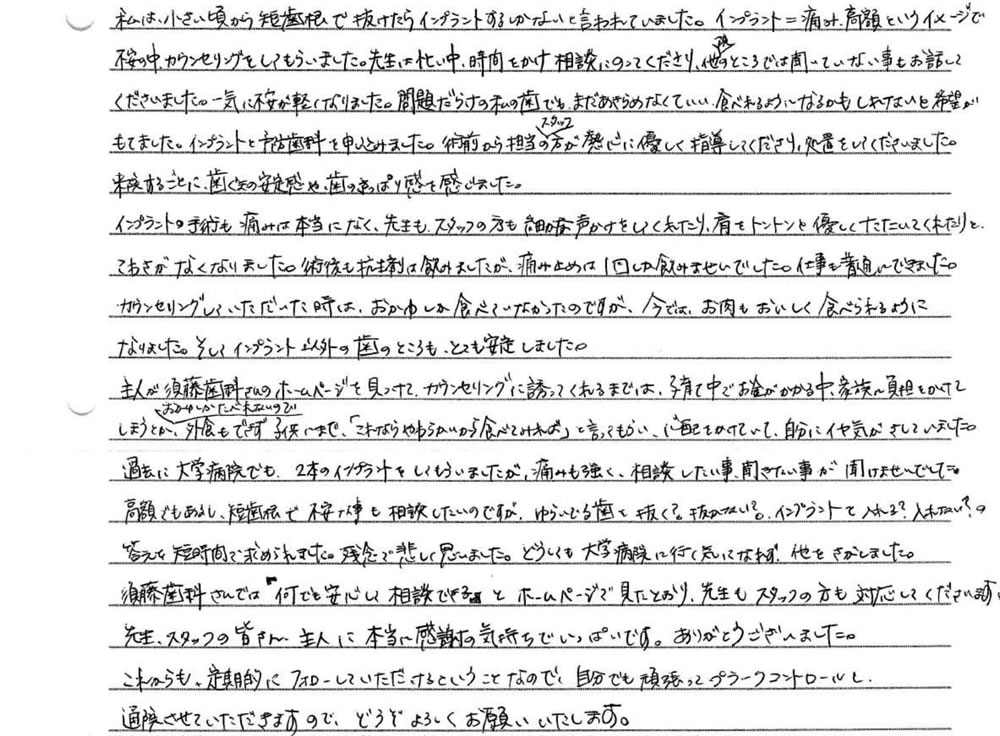 私は、小さい頃から短歯根で抜けたらインプラントするしかないと言われていました。インプラント＝痛み、高額というイメージで
不安の中、カウンセリングをしてもらいました。先生は忙しい中、時間をかけ相談にのってくださり、他院のところでは聞いていない事もお話して
くださいました。一気に不安が軽くなりました。問題だらけの私の歯でも、まだあきらめなくていい、食べれるようになるかもしれないと希望が
もてました。インプラントと予防歯科を申し込みました。術前から担当のスタッフの方が熱心に優しく指導してくださり、処置をしてくださいました。
来院するごとに、歯ぐきの安定感や、歯のさっぱり感を感じました。
インプラントの手術も痛みは本当になく、先生も、スタッフの方も細かな声かけをしてくれたり、肩をトントンと優しくたたいてくれたりと、
こわさがなくなりました。術後も抗生剤は飲みましたが、痛み止めは1回しか飲みませんでした。仕事も普通にできました。
カウンセリングしていただいた時は、おかゆしか食べていなかったのですが、今では、お肉もおいしく食べられるように
なりました。そしてインプラント以外の歯のところも、とても安定しました。
主人が須藤歯科さんのホームページを見つけて、カウンセリングに誘ってくれるまでは、子育て中でお金がかかる中、家族へ負担をかけて
しまうとか、おかゆしかたべれないので外食もできず子供にまで、「これならやわらかいから食べてみれば」と言ってもらい、心配をかけていて、自分にイヤ気がさしていました。
過去に大学病院でも、2本のインプラントをしてもらいましたが、痛みも強く、相談したい事、聞きたい事が聞けませんでした。
高額でもあるし、短歯根で不安な事も相談したいのですが、ゆらいでる歯を抜く？抜かない？。インプラントを入れる？入れない？の
答えを短時間で求められました。残念で悲しく思いました。どうしても大学病院に行く気になれず、他をさがしました。
須藤歯科さんでは「何でも安心して相談できる」とホームページで見たとおり、先生もスタッフの方も対応してくださいます。
先生、スタッフの皆さん、主人に本当に感謝の気持ちでいっぱいです。ありがとうございました。
これからも、定期的にフォローしていただけるということなので、自分でも頑張ってプラークコントロールし、
通院させていただきますので、どうぞよろしくお願いいたします。